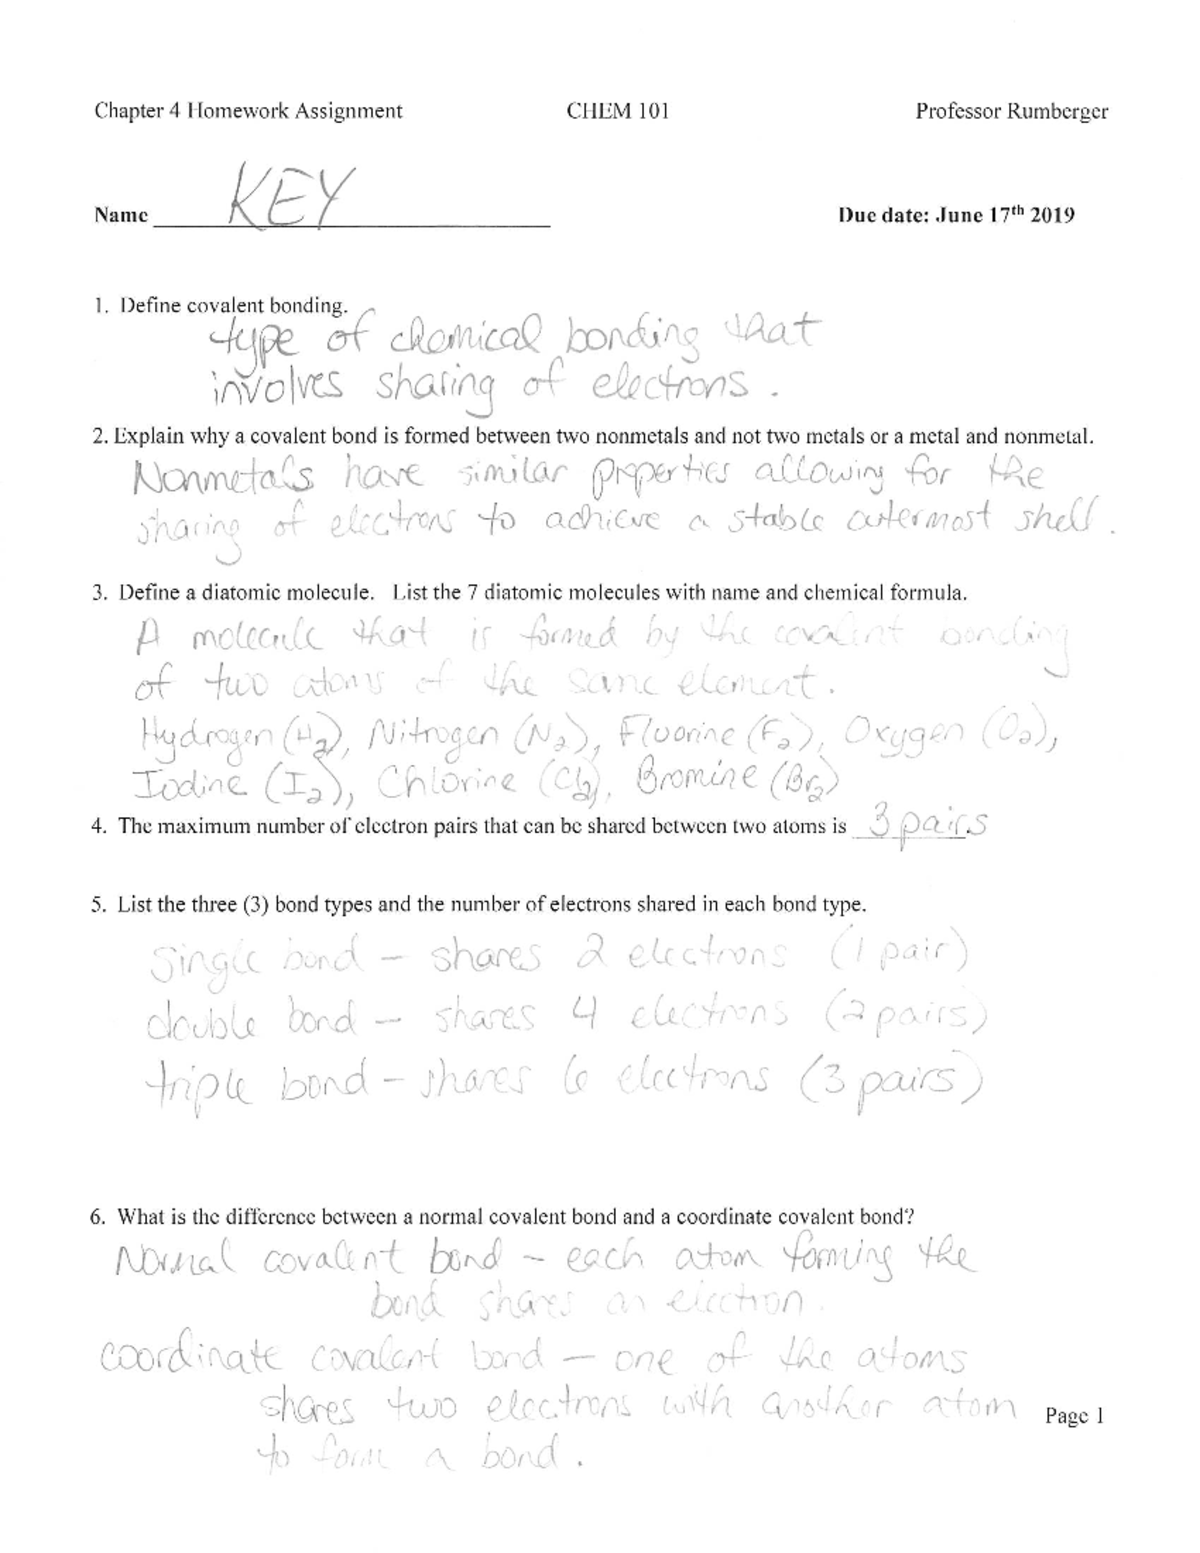 Chapter 4 Homework Assignment CHEM 101 Professor Rumberger
Name KEY Due date: June 17th 2019
1. Define covalent bonding.
type of chemical bonding that
involves sharing of electrons.
2. Explain why a covalent bond is formed between two nonmetals and not two metals or a metal and nonmetal.
Nonmetals have similar properties allowing for the
sharing of electrons to achieve a stable outermost shell.
3. Define a diatomic molecule. List the 7 diatomic molecules with name and chemical formula.
A molecule that is formed by the covalent bonding
of two atoms of the same element.
Hydrogen (H2), Nitrogen (N2), Fluorine (F2), Oxygen (O2),
Iodine (I2), Chlorine (Cl2), Bromine (Br2)
4. The maximum number of electron pairs that can be shared between two atoms is 3 pairs
5. List the three (3) bond types and the number of electrons shared in each bond type.
single bond – shares 2 electrons (1 pair)
double bond – shares 4 electrons (2 pairs)
triple bond – shares 6 electrons (3 pairs)
6. What is the difference between a normal covalent bond and a coordinate covalent bond?
Normal covalent bond – each atom forming the
bond shares an electron.
coordinate covalent bond – one of the atoms
shares two electrons with another atom
Page 1
to form a bond.